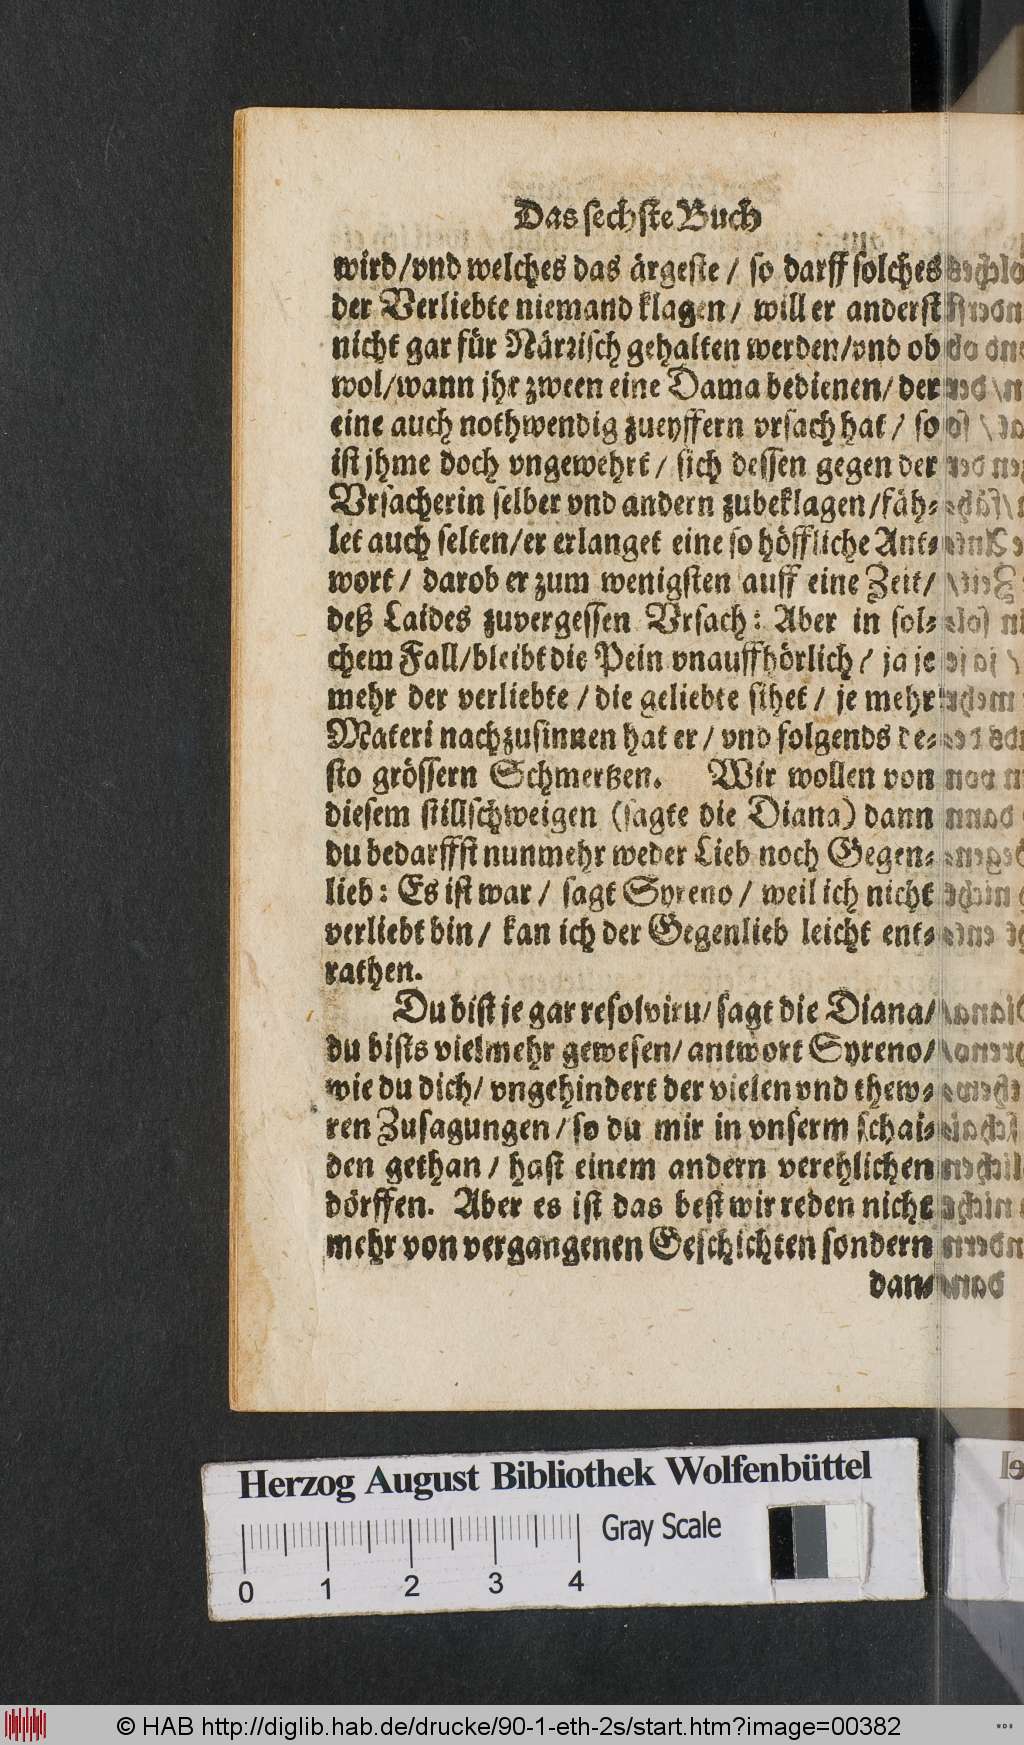 Das sechste Buch
wird/vnd welches das ärgeste / so darff solches
der Verliebte niemand klagen / will er anderst
nicht gar für Närrisch gehalten werden/vnd ob
wol/wann jhr zween eine Dama bedienen/ der
eine auch nothwendig zueyffern vrsach hat / so
ist jhme doch vngewehrt / sich dessen gegen der
Vrsacherin selber vnd andern zubeklagen/fäh-
let auch selten/er erlanget eine so höffliche Ant-
wort / darob er zum wenigsten auff eine Zeit/
deß Laides zuvergessen Vrsach: Aber in sol-
chem Fall/bleibt die Pein vnauffhörlich / ja je
mehr der verliebte / die geliebte sihet / je mehr
Materi nachzusinnen hat er / vnd folgends de-
sto grössern Schmertzen. Wir wollen von
diesem stillschweigen (sagte die Diana) dann
du bedarffst nunmehr weder Lieb noch Gegen-
lieb: Es ist war / sagt Syreno / weil ich nicht
verliebt bin / kan ich der Gegenlieb leicht ent-
rathen.
Du bist je gar resolvirt/ sagt die Diana/
du bists vielmehr gewesen/ antwort Syreno/
wie du dich/ vngehindert der vielen vnd thew-
ren Zusagungen / so du mir in vnserm schai-
den gethan / hast einem andern verehlichen
dörffen. Aber es ist das best wir reden nicht
mehr von vergangenen Geschichten sondern
dan-
Herzog August Bibliothek Wolfenbüttel
Gray Scale
0 1 2 3 4
© HAB http://diglib.hab.de/drucke/90-1-eth-2s/start.htm?image=00382